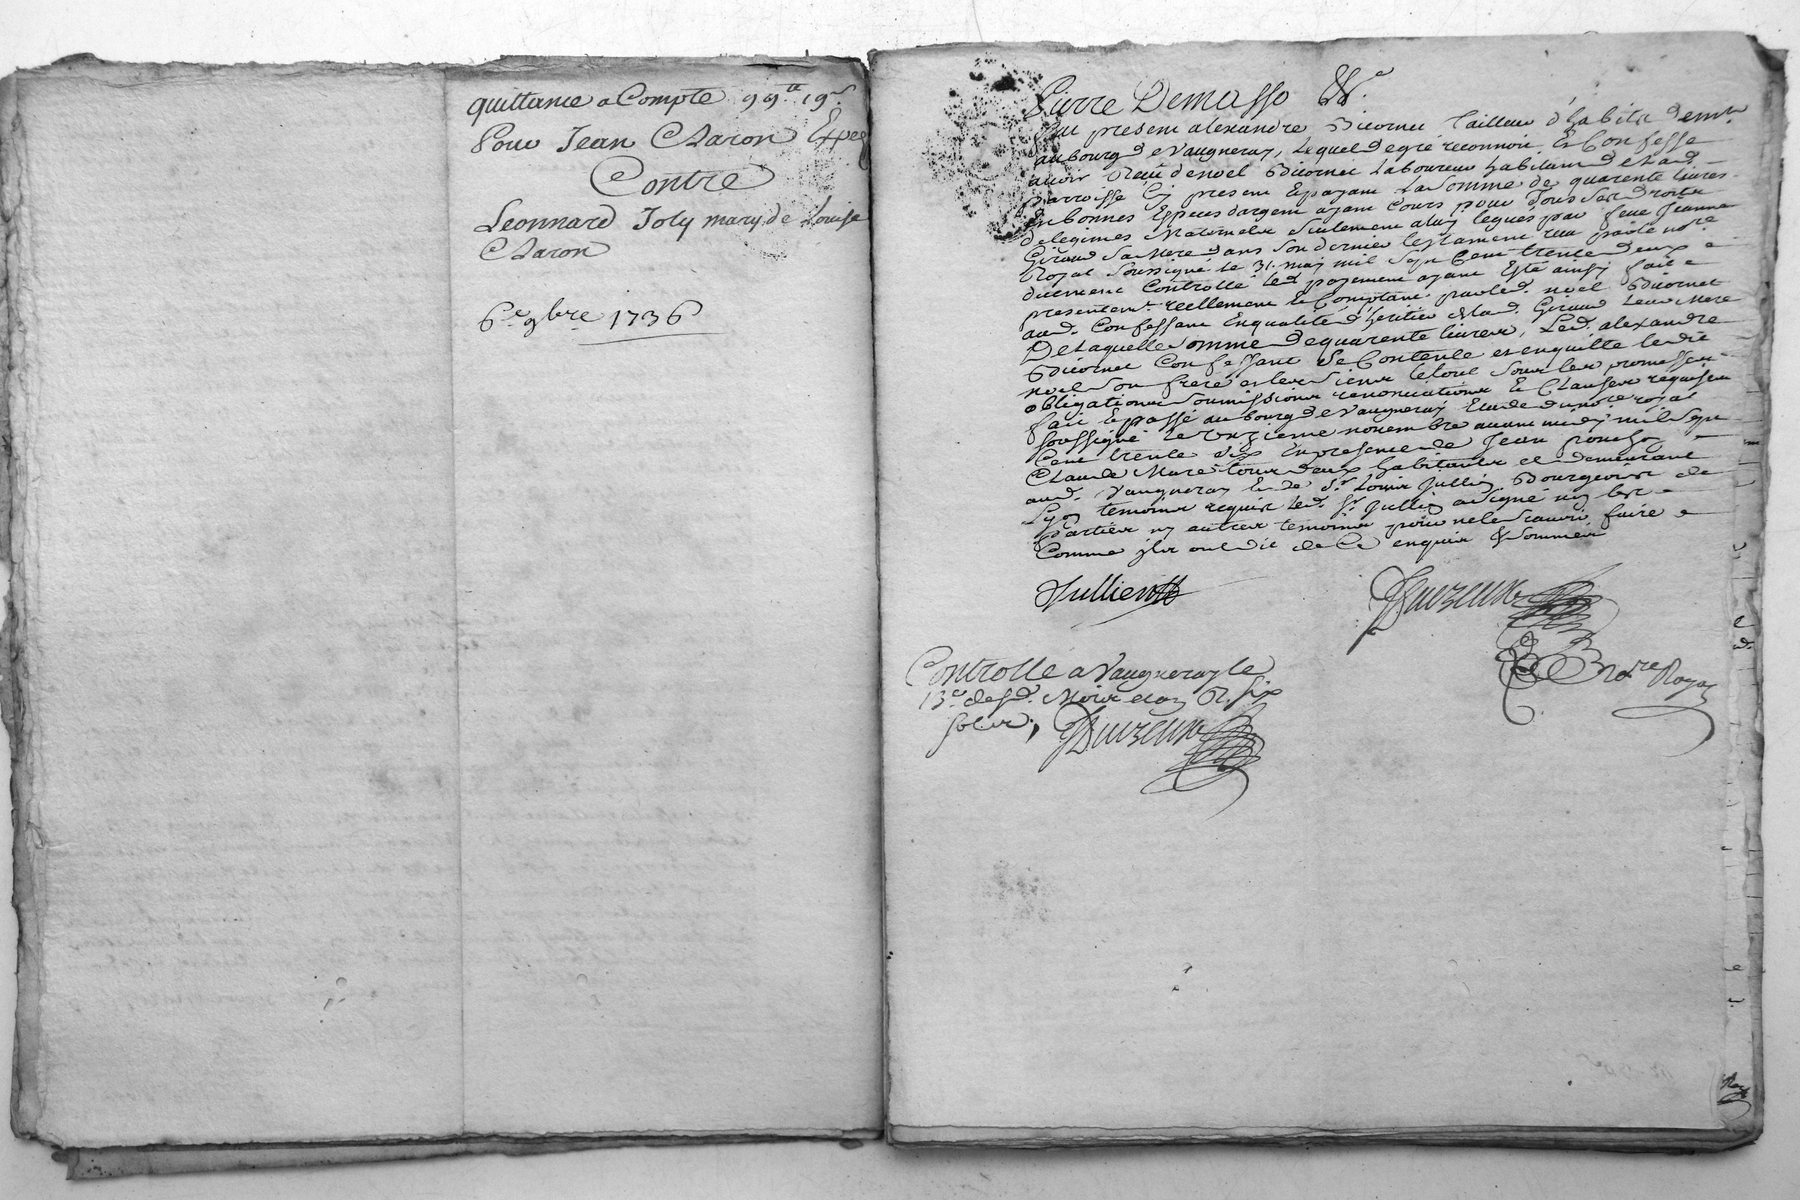 quittance a Compte 99ᵗᵗ 19ˢ
Pour Jean Charon Exped
Contre
Leonnard Joly mary de Louise
Charon
6ᵉ 9bre 1736
Pierre Demasso &ᵉ
Fut present alexandre Bicornet Tailleur d'habits demᵗ
au bourg de Vaugneray, Lequel de gré reconnoit Et Confesse
avoir Reçu de noel Bicornet Laboureur habitant de Lad.
parroisse Cy present Et payant La Somme de quarente livres
En bonnes Especes dargent ayant Cours pour tous Ses droits
de legitimes Maternels Seulement a luy legués par feue Jeanne
Giraud Sa Mere dans Son dernier testament reçu par le noʳᵉ
Royal Soussigné le 31. may mil Sept Cent trente deux
duement Controllé Led. payement ayant Eté ainsy fait
presentemᵗ. reellement Et Comptant par led. noel Bicornet
aud. Confessant En qualité d'heritier de lad. Giraud leur Mere
De laquelle Somme de quarente livres, Led. alexandre
Bicornet Confessant Se Contente et en quitte ledit
noel Son frere et les Siens le tout Sous les promesses
obligations Soumissions renonciations Et Clauses requises
fait Et passé au bourg de Vaugneray Etude du noʳᵉ royal
Soussigné le onzieme novembre avant midy mil Sept
Cent trente Six En presence de Jean ponchon
Claude Mure tous deux habitants et demeurant
aud. Vaugneray Et de Sʳ Louis Jullien Bourgeois de
Lyon temoins requis Led. Sʳ. Jullien a Signé non les
parties ny autres temoins pour ne le Scavoir faire
Comme ils ont dit de Ce enquis & Sommes
Jullien
Duvzeux
Noʳᵉ Royal
Controllé a Vaugneray le
13ᵉ desd. Mois et an R. Six
Sols,
Duvzeux